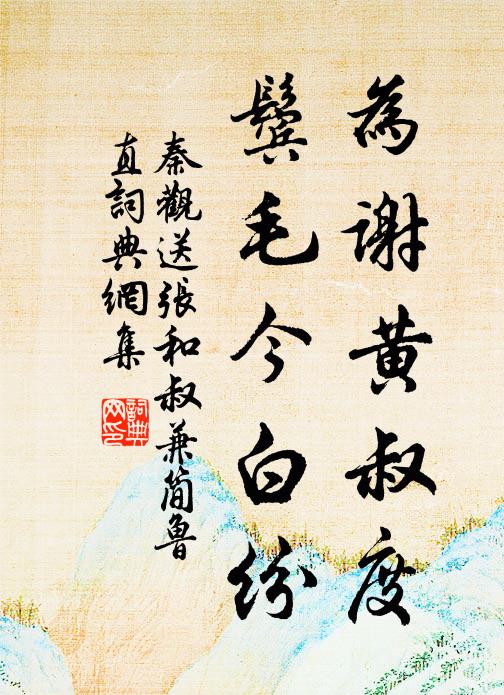 為謝黄叔度
鬓毛今白紛
秦觀送張和叔兼简魯
直詞典網集
詞典
网印